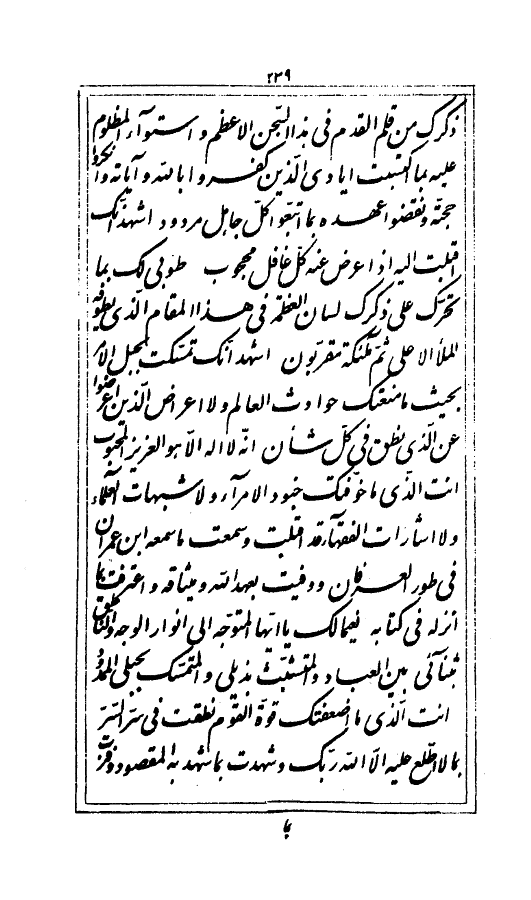 ۲۳۹
ذكرك من قلم القدم فى هذا السّجن الاعظم و استوآء المظلوم
عليه بما اكتسبت ايادى الّذين كفروا بالله و آياته و انكروا
حجّته و نقضوا عهده بما اتّبعوا كلّ جاهل مردود اشهد انّك
اقبلت اليه اذ اعرض عنه كلّ غافل محجوب طوبى لك بما
تحرّك على ذكرك لسان العظمة فى هذا المقام الّذى يطوفه
الملأ الاعلى ثمّ ملئكة مقرّبون اشهد انّك تمسّكت بحبل الأمر
بحيث ما منعتك حوادث العالم ولا اعراض الّذين اعرضوا
عن الّذى نطق فى كلّ شأن انّه لا اله الّا هو العزيز المحبوب
انت الّذى ما خوّفتك جنود الامرآء ولا شبهات العلماء
ولا اشارات الفقهآء قد اقبلت و سمعت ما سمعه ابن عمران
فى طور العرفان و وفيت بعهد الله و ميثاقه و اعترفت بما
انزله فى كتابه نعيما لك يا ايّها المتوجّه الى انوار الوجه و النّاطق
بثنآئى بين العباد و المتشبّث بذيلى و المتمسّك بحبلى الممدود
انت الّذى ما اضعفتك قوّة القوم نطقت فى سرّ السّرّ
بما لا اطّلع عليه الّا الله ربّك و شهدت بما شهد به المقصود و فزت
بما